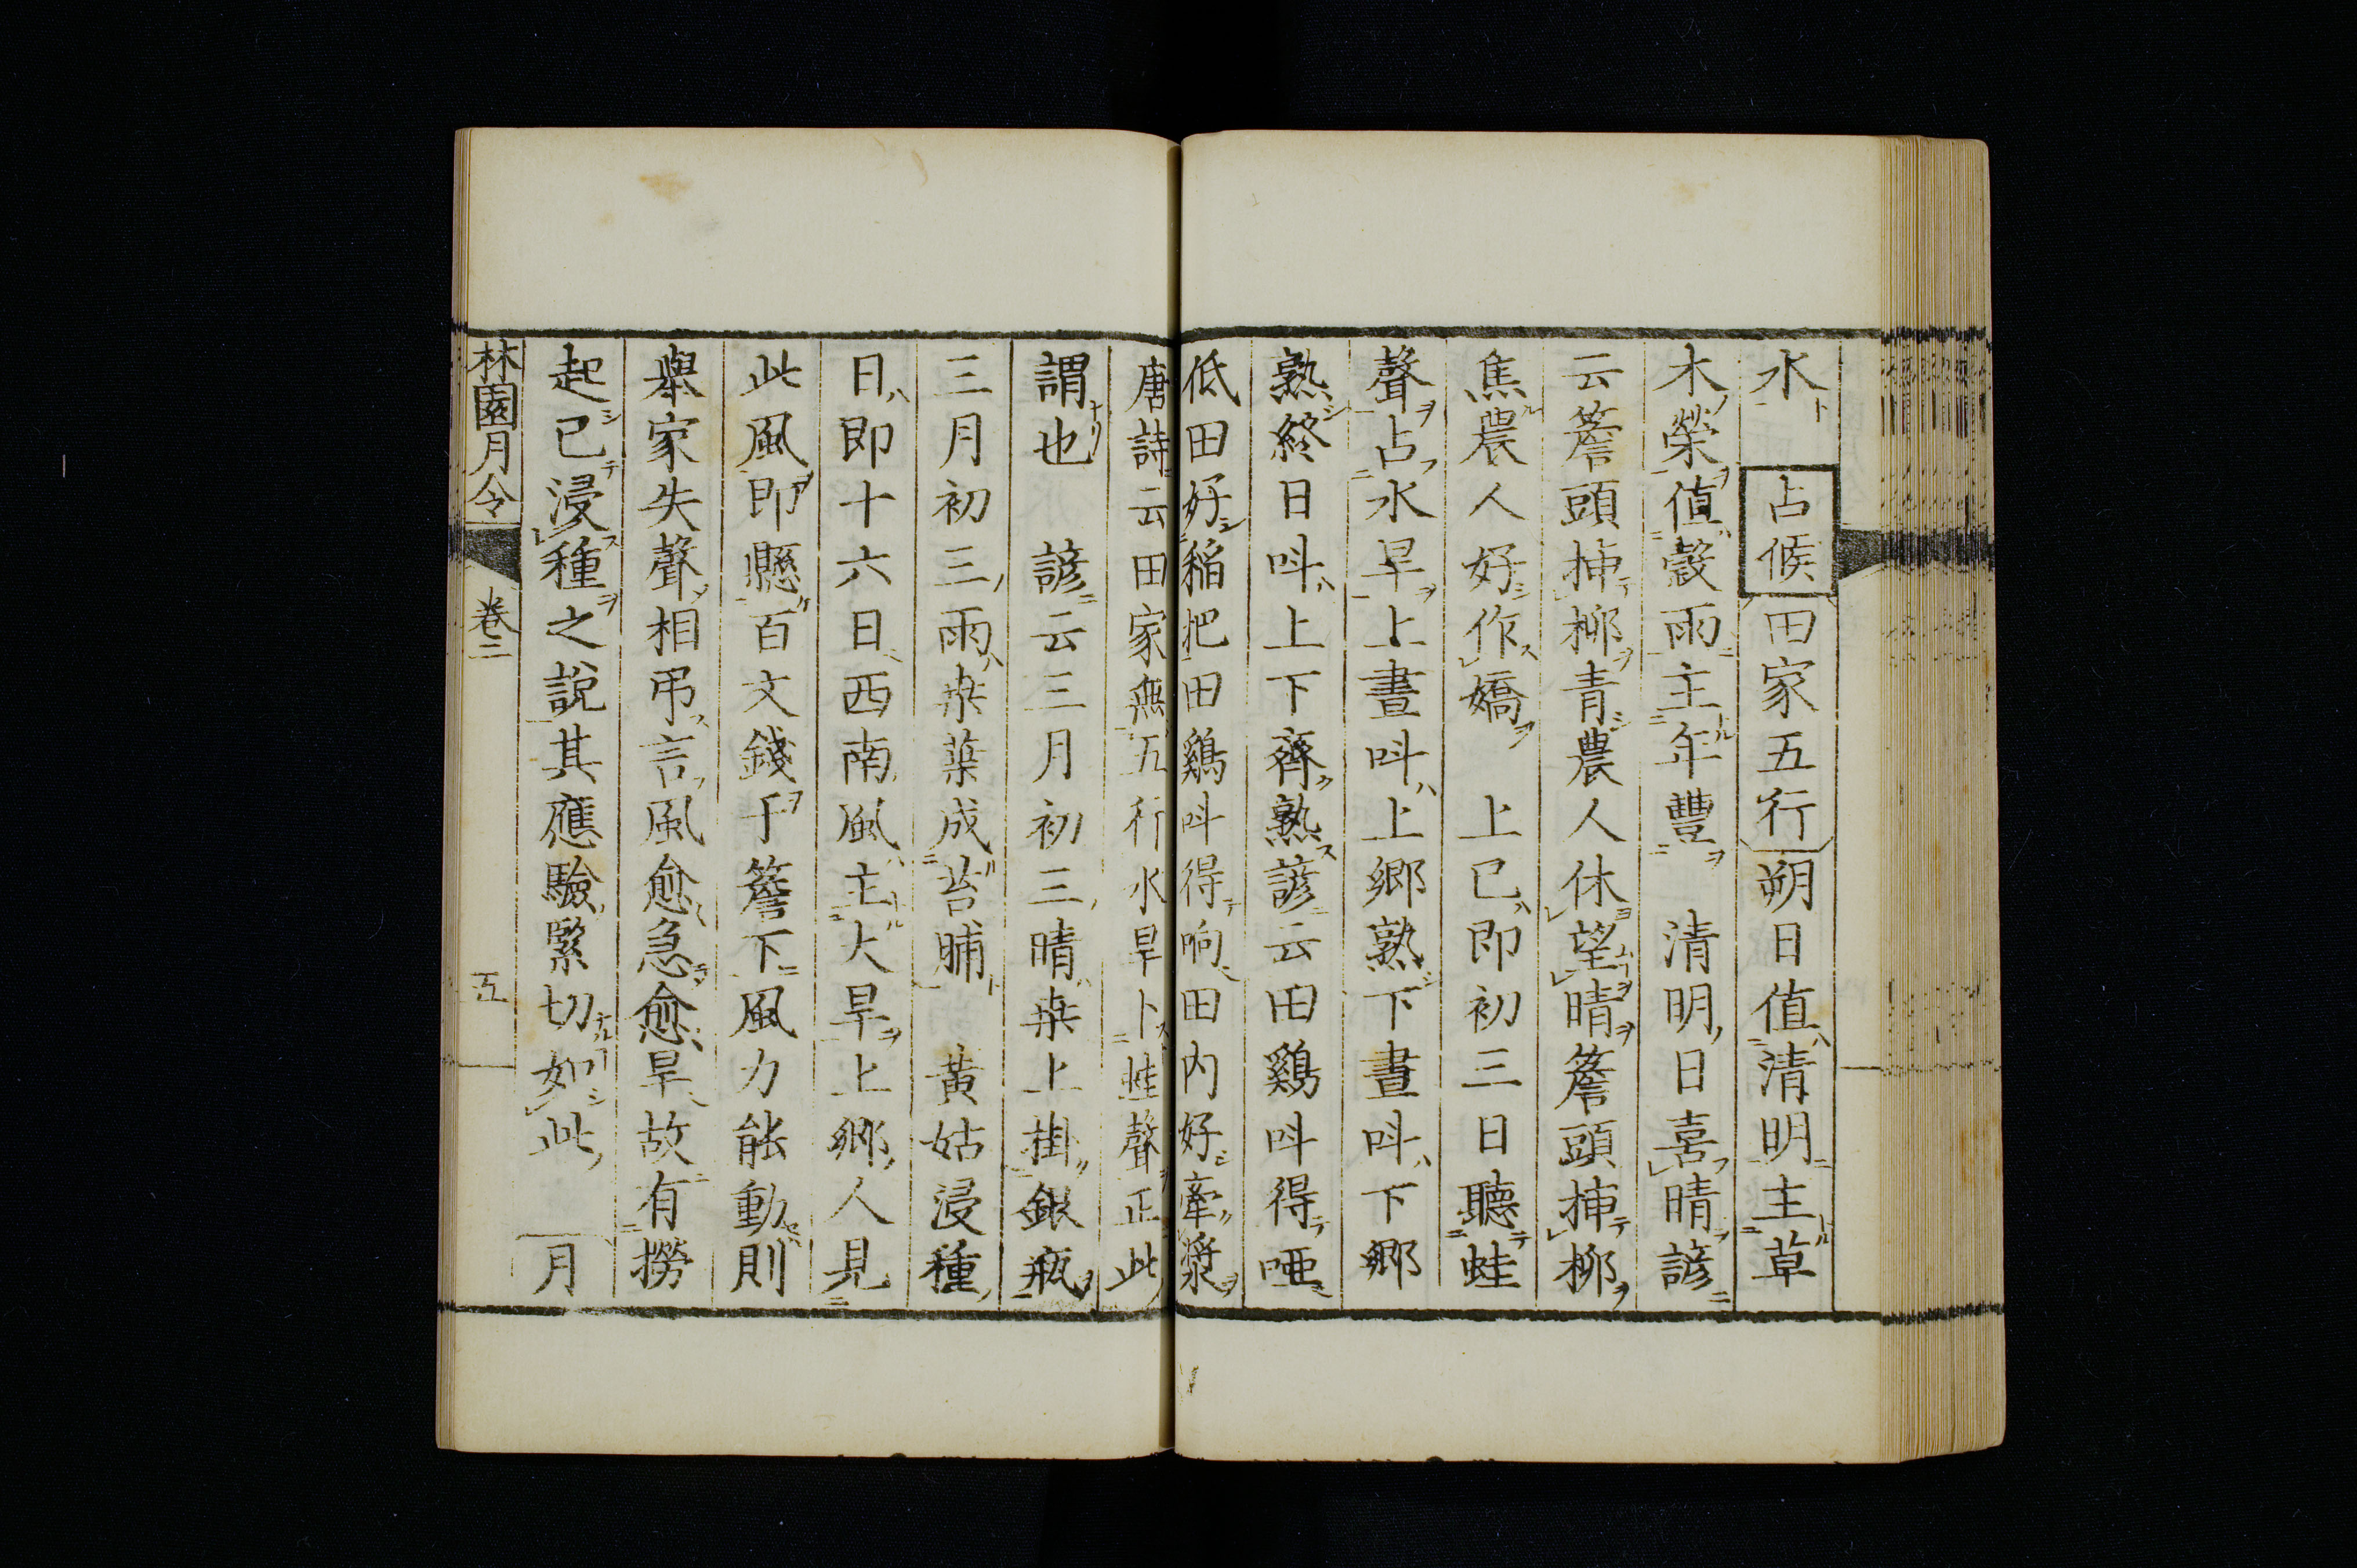 水 占候 田家五行 朔日值清明主草
木榮值穀雨主年豐 清明日喜晴諺
云簷頭挿柳青農人休望晴簷頭挿柳
焦農人好作嬌 上巳即初三日聽蛙
聲占水旱上晝呌上鄉熟下晝呌下鄉
熟終日呌上下齊熟諺云田鷄呌得啞
低田好稻把田鷄呌得响田内好牽漿
唐詩云田家無五行水旱卜蛙聲正此
謂也 諺云三月初三晴桒上掛銀瓶
三月初三雨桒葉成苔脯 黃姑浸種
日即十六日西南風主大旱上鄉人見
此風即懸百文錢于簷下風力能動則
舉家失聲相弔言風愈急愈旱故有撈
起已浸種之說其應驗緊切如此 月
林園月令 卷二 五